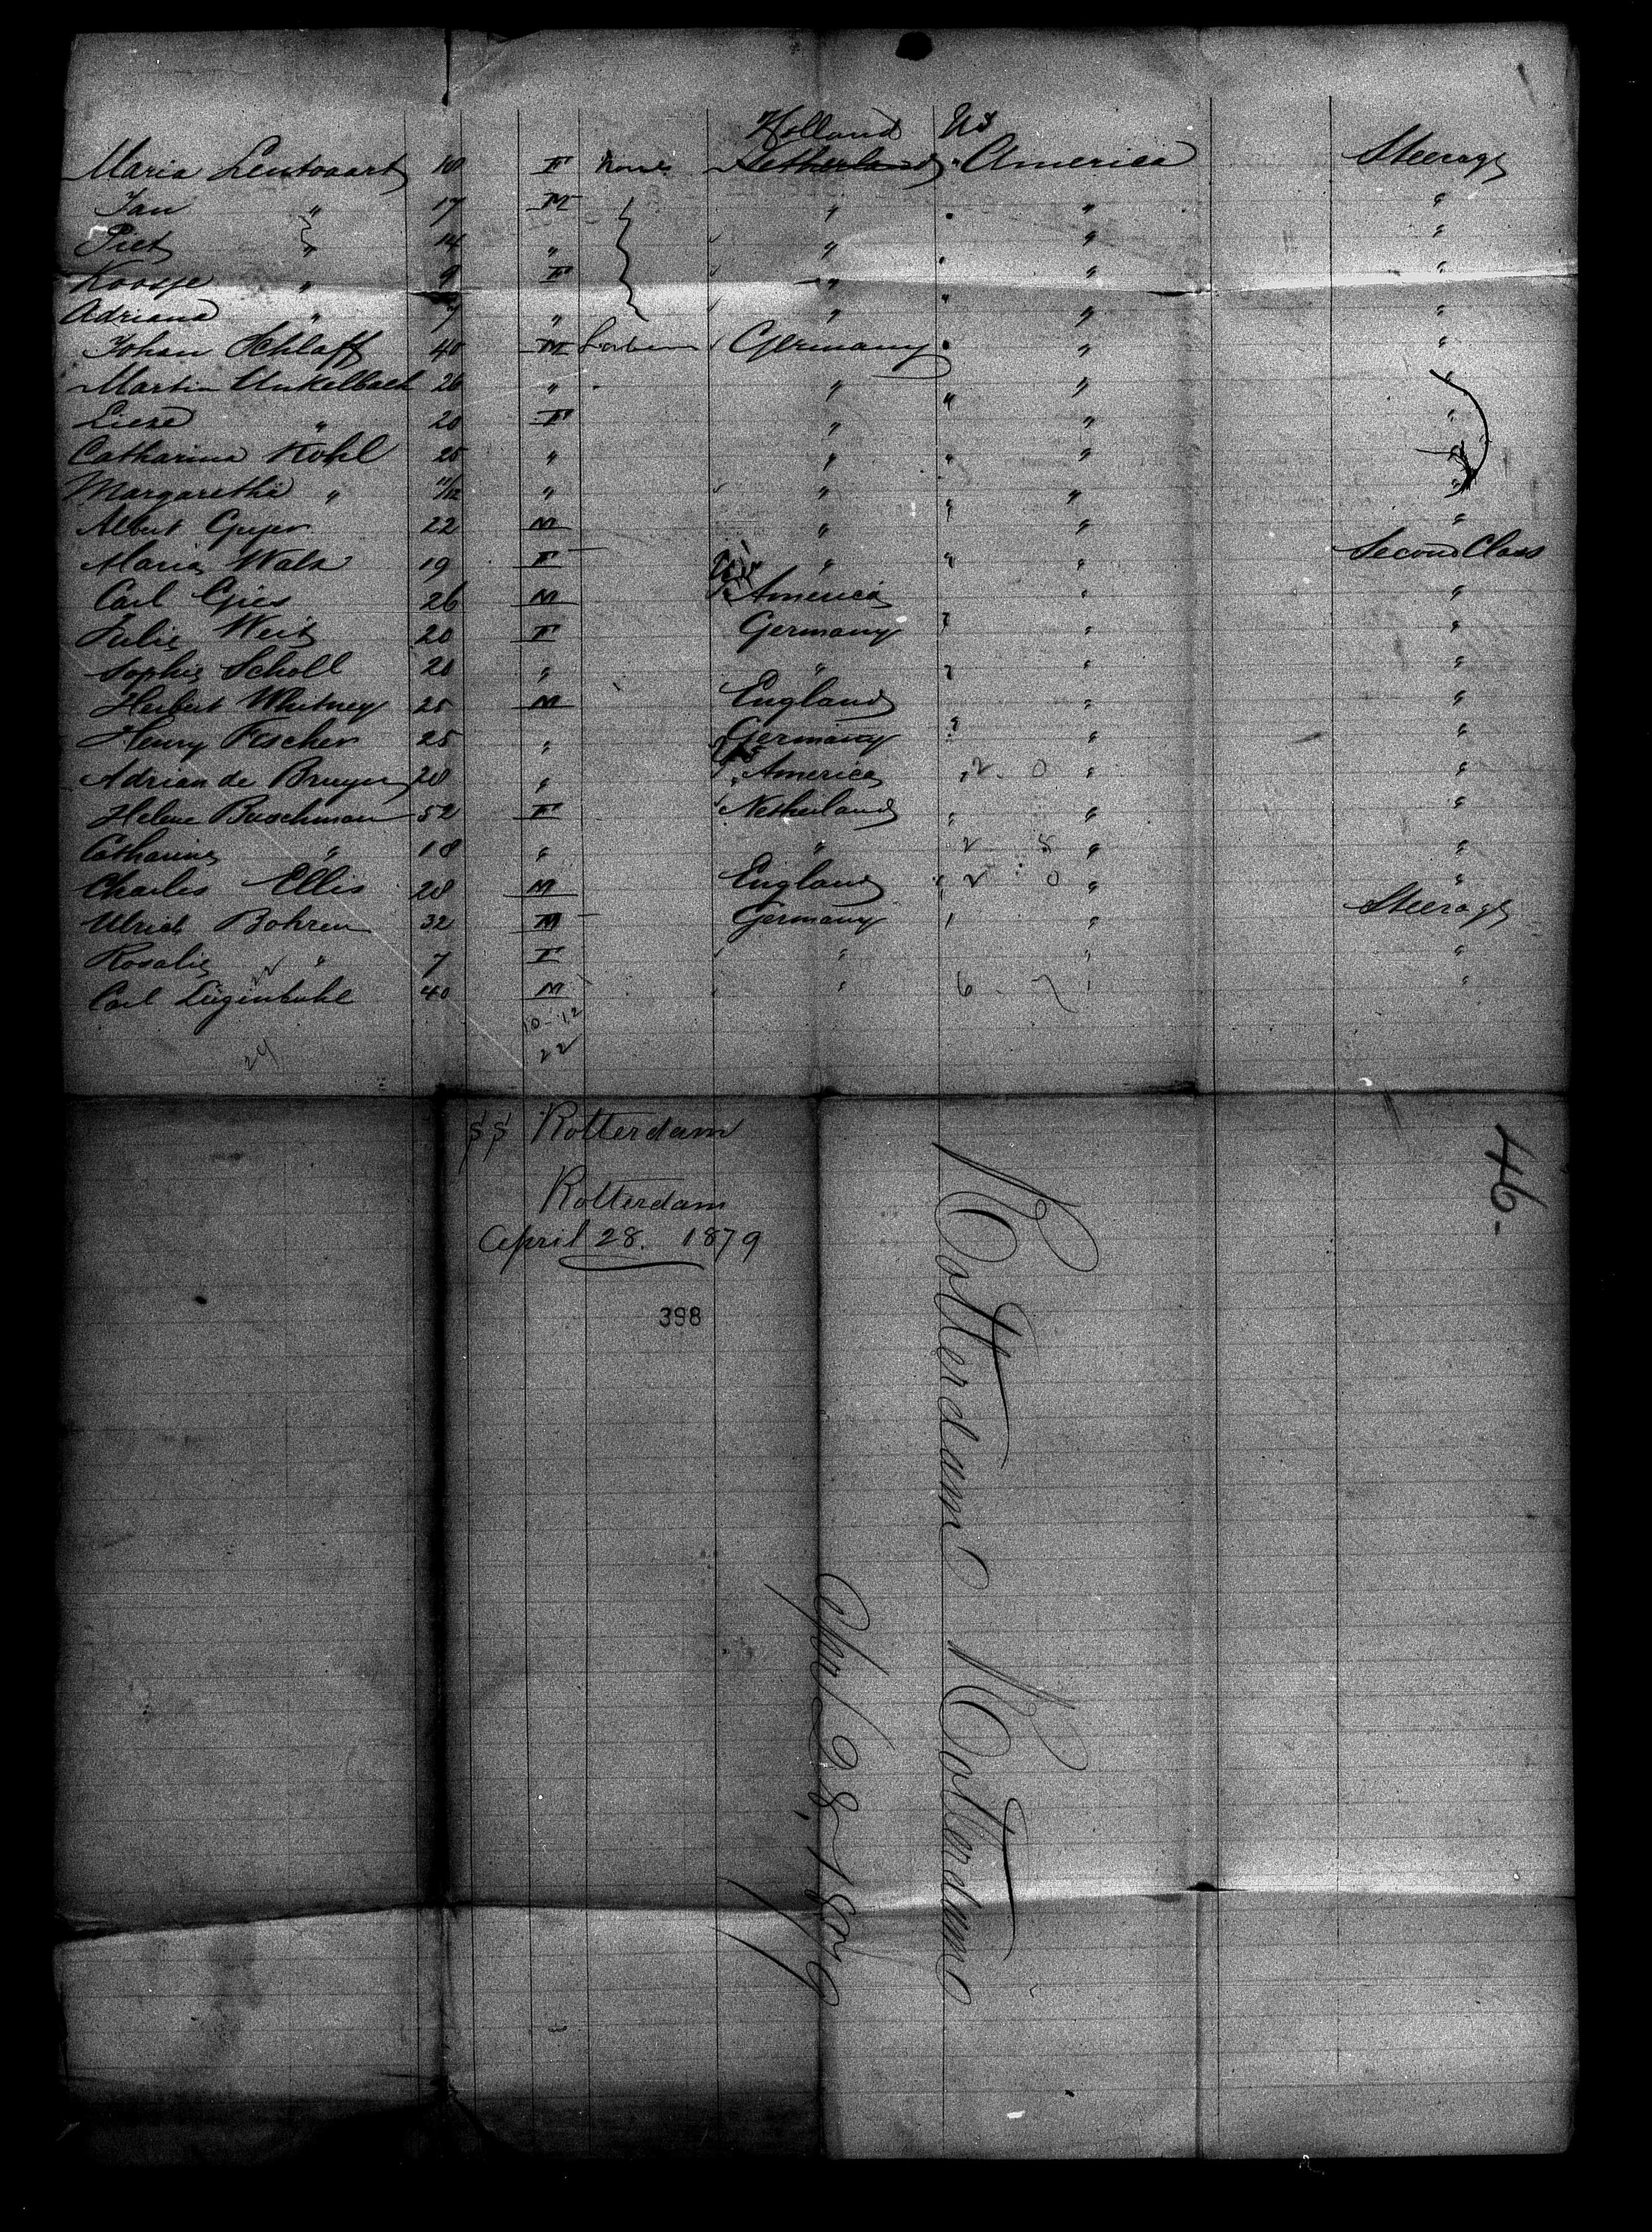 Holland US
Maria Lentvaart 18 F None Netherland America Steerage
Jan " 17 M " " "
Piet " 14 " " " "
Koosje " 9 F " " "
Adriana " 7 " " " "
Johan Schlaff 40 M Germany " "
Martin Unkelbach 26 " " " "
Liese " 20 F " " "
Catharina Kohl 25 " " " "
Margaretha " 11/12 " " " "
Albert Geyer 22 M " " "
Maria Walz 19 F " " Second Class
Carl Gies 26 M US America " "
Julie Weis 20 F Germany " "
Sophie Scholl 20 " " " "
Herbert Whitney 25 M England " "
Henry Fischer 25 " Germany " "
Adrian de Bruyn 28 " US America " "
Helene Buschman 52 F Netherland " "
Catharina " 18 " " " "
Charles Ellis 28 M England " "
Ulrich Bohren 32 M Germany " Steerage
Rosalie " 7 F " " "
Carl Luginbuhl 40 M " "
10-12
24 22
SS Rotterdam
Rotterdam
April 28. 1879
398
46-
Rotterdam Rotterdam
April 28, 1879